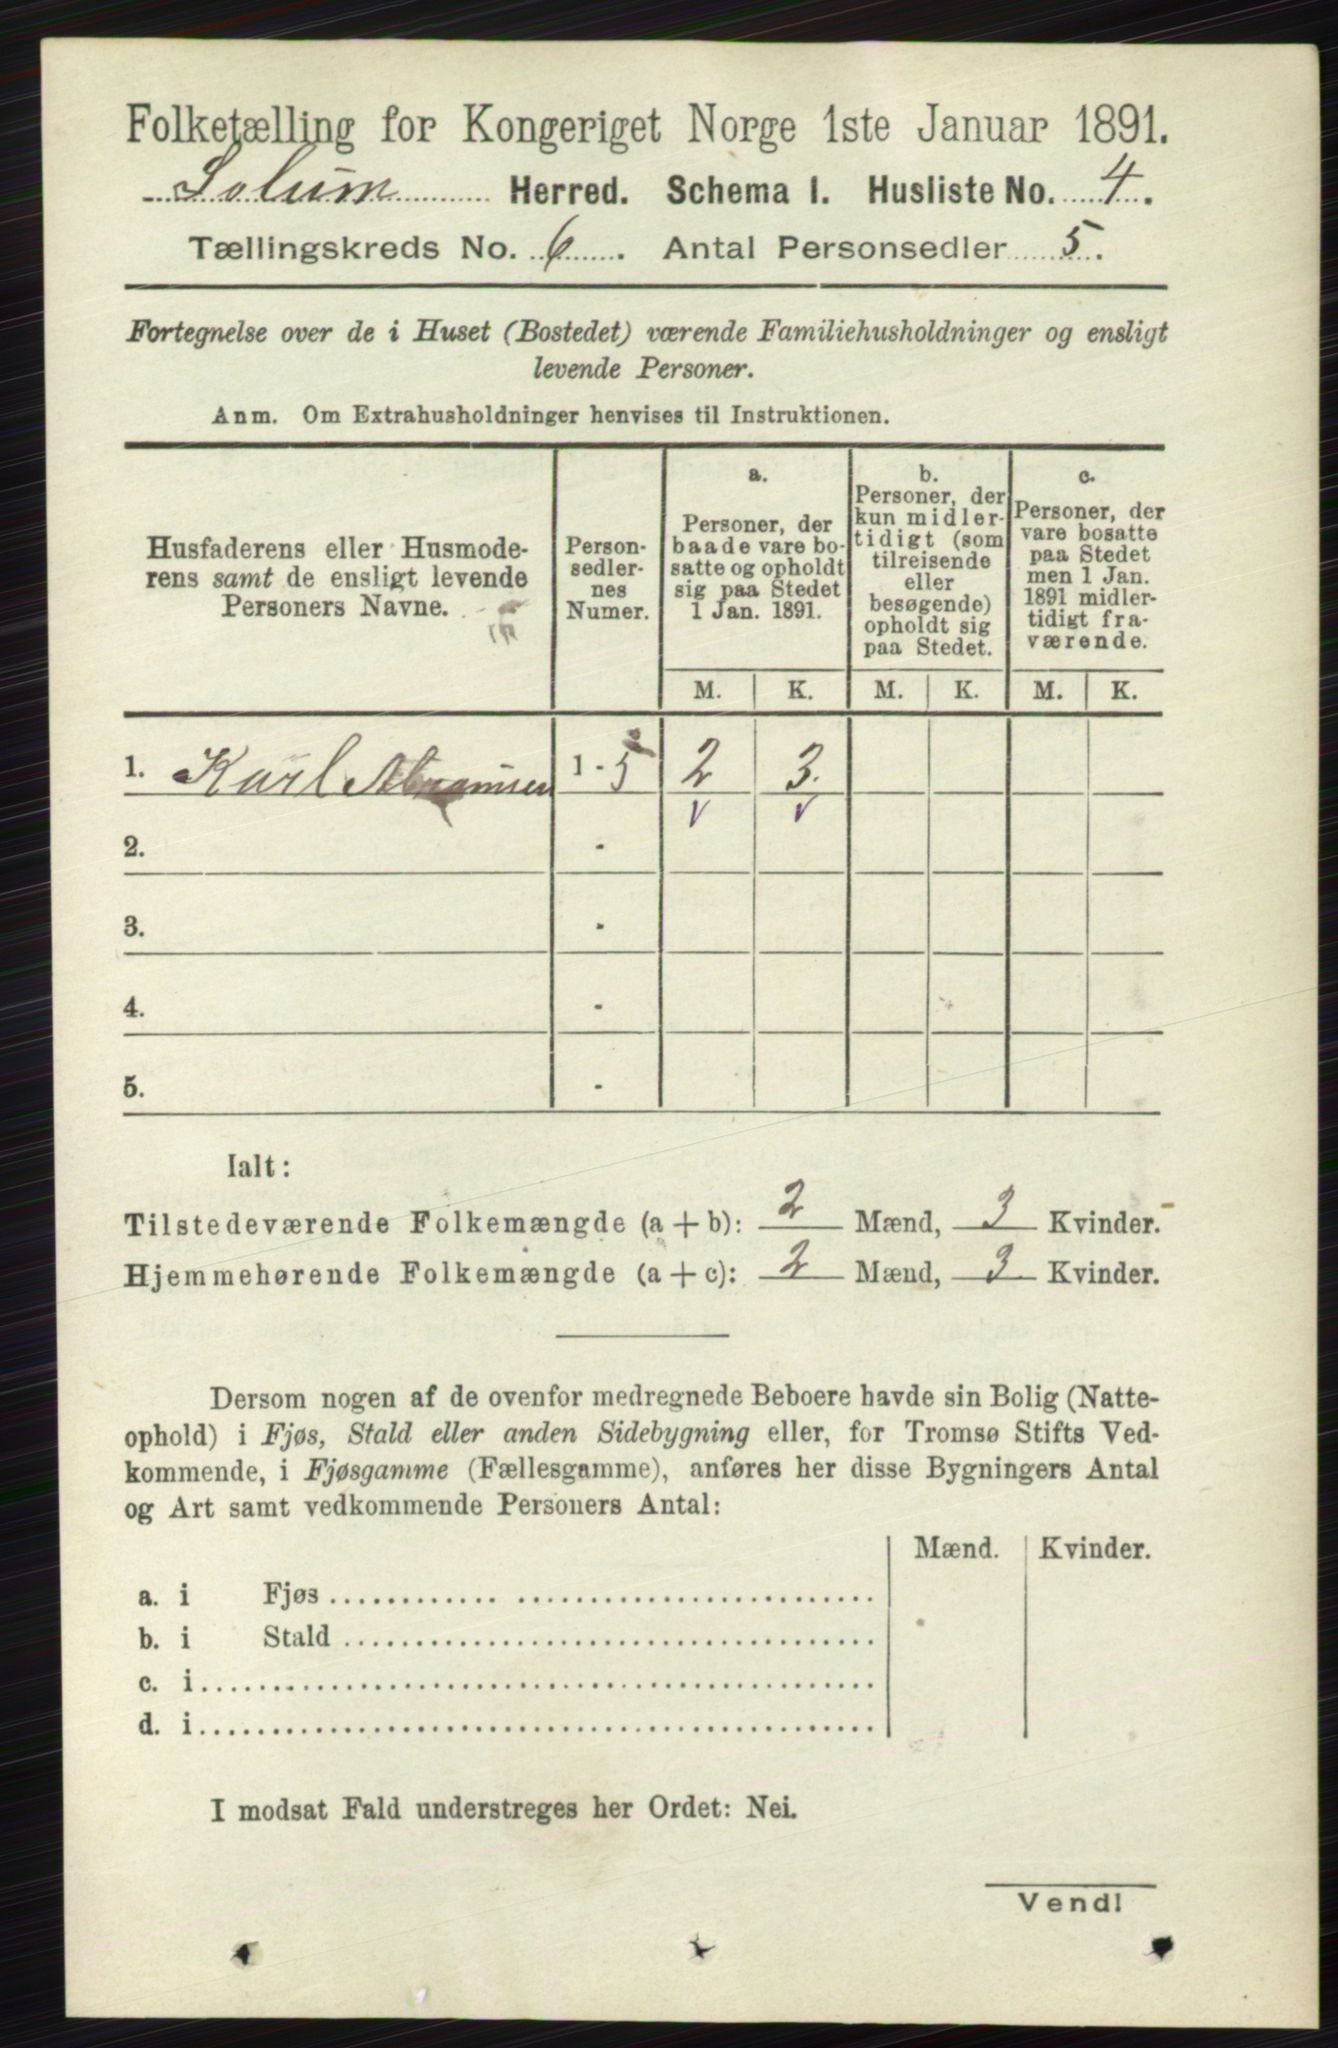 Folketælling for Kongeriget Norge 1ste Januar 1891.
Solum Herred. Schema I. Husliste No. 4.
Tællingskreds No. 6. Antal Personsedler 5.
Fortegnelse over de i Huset (Bostedet) værende Familiehusholdninger og ensligt
levende Personer.
Anm. Om Extrahusholdninger henvises til Instruktionen.
Husfaderens eller Husmode-
rens samt de ensligt levende
Personers Navne.
Person-
sedler-
nes
Numer.
a.
Personer, der
baade vare bo-
satte og opholdt
sig paa Stedet
1 Jan. 1891.
b.
Personer, der
kun midler-
tidigt (som
tilreisende
eller
besøgende)
opholdt sig
paa Stedet.
c.
Personer, der
vare bosatte
paa Stedet
men 1 Jan.
1891 midler-
tidigt fra-
værende.
M. K. M. K. M. K.
1. Karl Abramsen 1 - 5 2 3.
2. -
3. -
4. -
5. -
Ialt:
Tilstedeværende Folkemængde (a + b): 2 Mænd, 3 Kvinder.
Hjemmehørende Folkemængde (a + c): 2 Mænd, 3 Kvinder.
Dersom nogen af de ovenfor medregnede Beboere havde sin Bolig (Natte-
ophold) i Fjøs, Stald eller anden Sidebygning eller, for Tromsø Stifts Ved-
kommende, i Fjøsgamme (Fællesgamme), anføres her disse Bygningers Antal
og Art samt vedkommende Personers Antal:
Mænd. Kvinder.
a. i Fjøs
b. i Stald
c. i
d. i
I modsat Fald understreges her Ordet: Nei.
Vend!